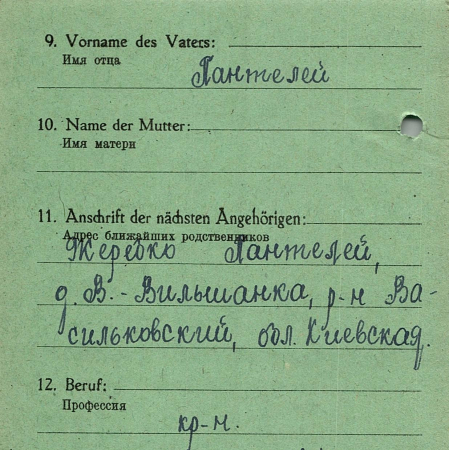 9. Vorname des Vaters:
Имя отца
Пантелей
10. Name der Mutter:
Имя матери
11. Anschrift der nächsten Angehörigen:
Адрес ближайших родственников
Жеребко Пантелей,
д. В.-Вильшанка, р-н Ва-
сильковский, обл. Киевская.
12. Beruf:
Профессия
кр-н.